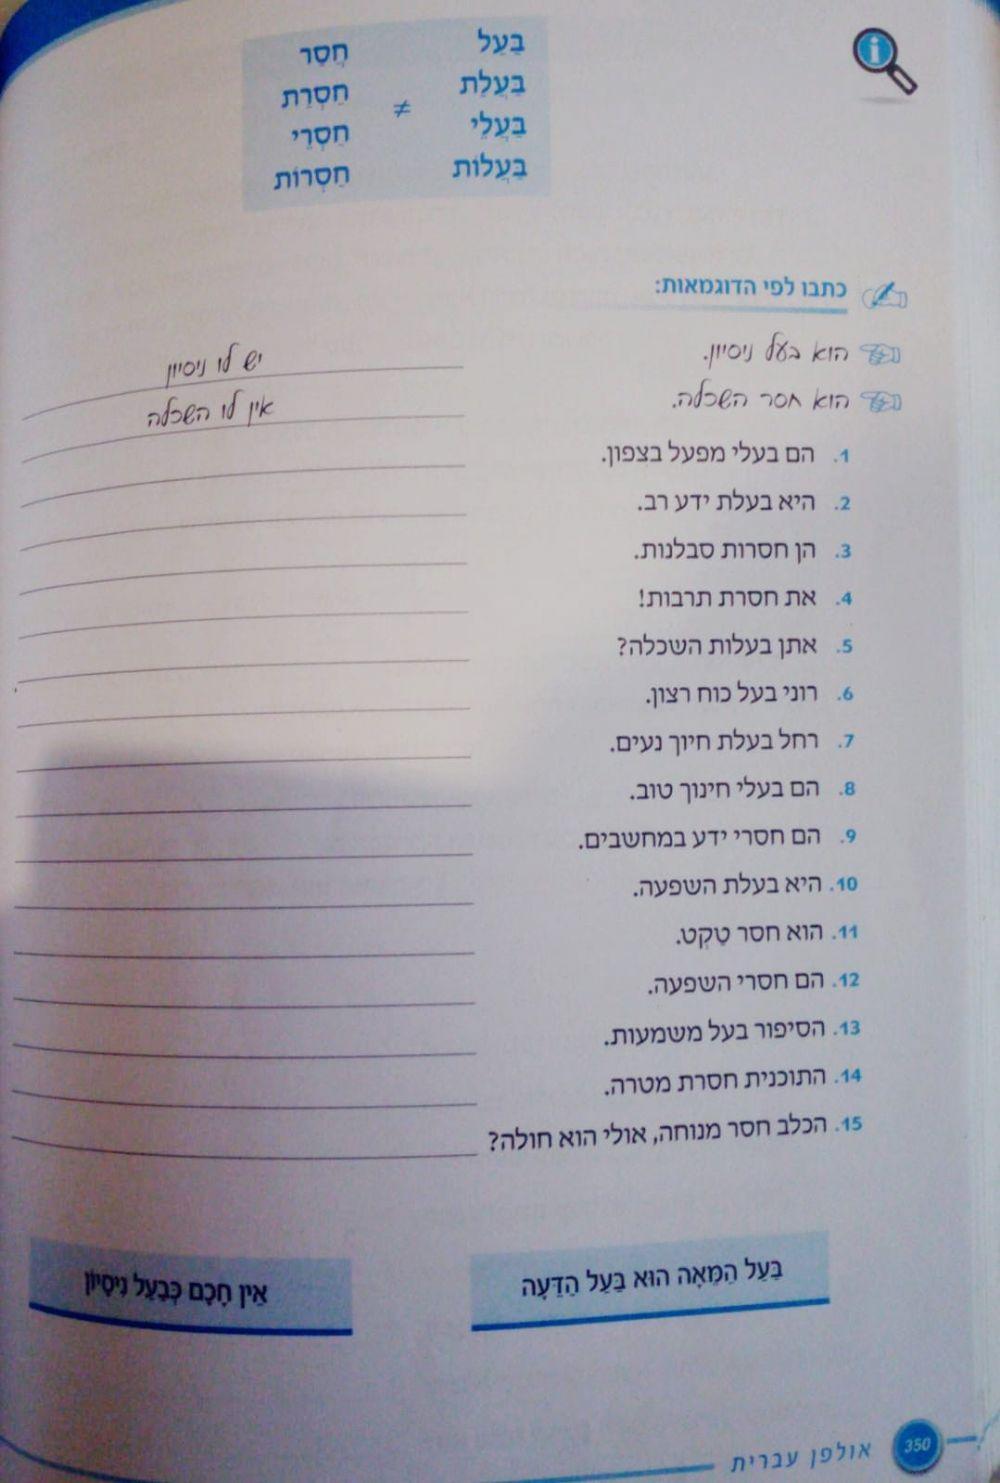 בַּעַל ≠ חֲסַר
בַּעֲלַת חַסְרַת
בַּעֲלֵי חַסְרֵי
בַּעֲלוֹת חַסְרוֹת
כתבו לפי הדוגמאות:
הוא בעל ניסיון. יש לו ניסיון
הוא חסר השכלה. אין לו השכלה
1. הם בעלי מפעל בצפון.
2. היא בעלת ידע רב.
3. הן חסרות סבלנות.
4. את חסרת תרבות!
5. אתן בעלות השכלה?
6. רוני בעל כוח רצון.
7. רחל בעלת חיוך נעים.
8. הם בעלי חינוך טוב.
9. הם חסרי ידע במחשבים.
10. היא בעלת השפעה.
11. הוא חסר טַקְט.
12. הם חסרי השפעה.
13. הסיפור בעל משמעות.
14. התוכנית חסרת מטרה.
15. הכלב חסר מנוחה, אולי הוא חולה?
בַּעַל הַמֵּאָה הוּא בַּעַל הַדֵּעָה
אֵין חָכָם כְּבַעַל נִיסָּיוֹן
350 אולפן עברית